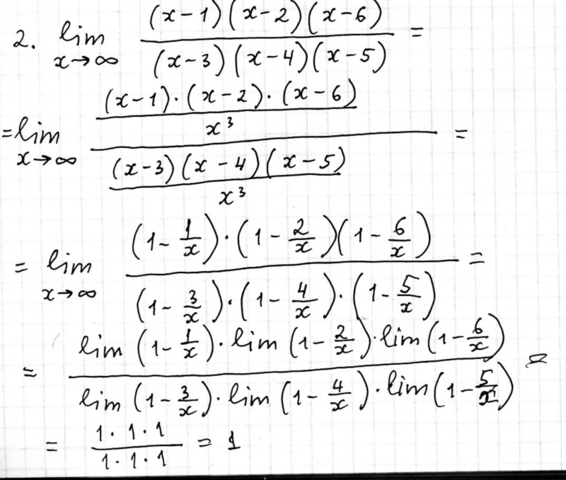 2. lim x→∞ (x-1)(x-2)(x-6) / (x-3)(x-4)(x-5) =
= lim x→∞ ((x-1)·(x-2)·(x-6) / x³) / ((x-3)(x-4)(x-5) / x³) =
= lim x→∞ (1-1/x)·(1-2/x)(1-6/x) / (1-3/x)·(1-4/x)·(1-5/x) =
= lim(1-1/x)·lim(1-2/x)·lim(1-6/x) / lim(1-3/x)·lim(1-4/x)·lim(1-5/x) =
= 1·1·1 / 1·1·1 = 1